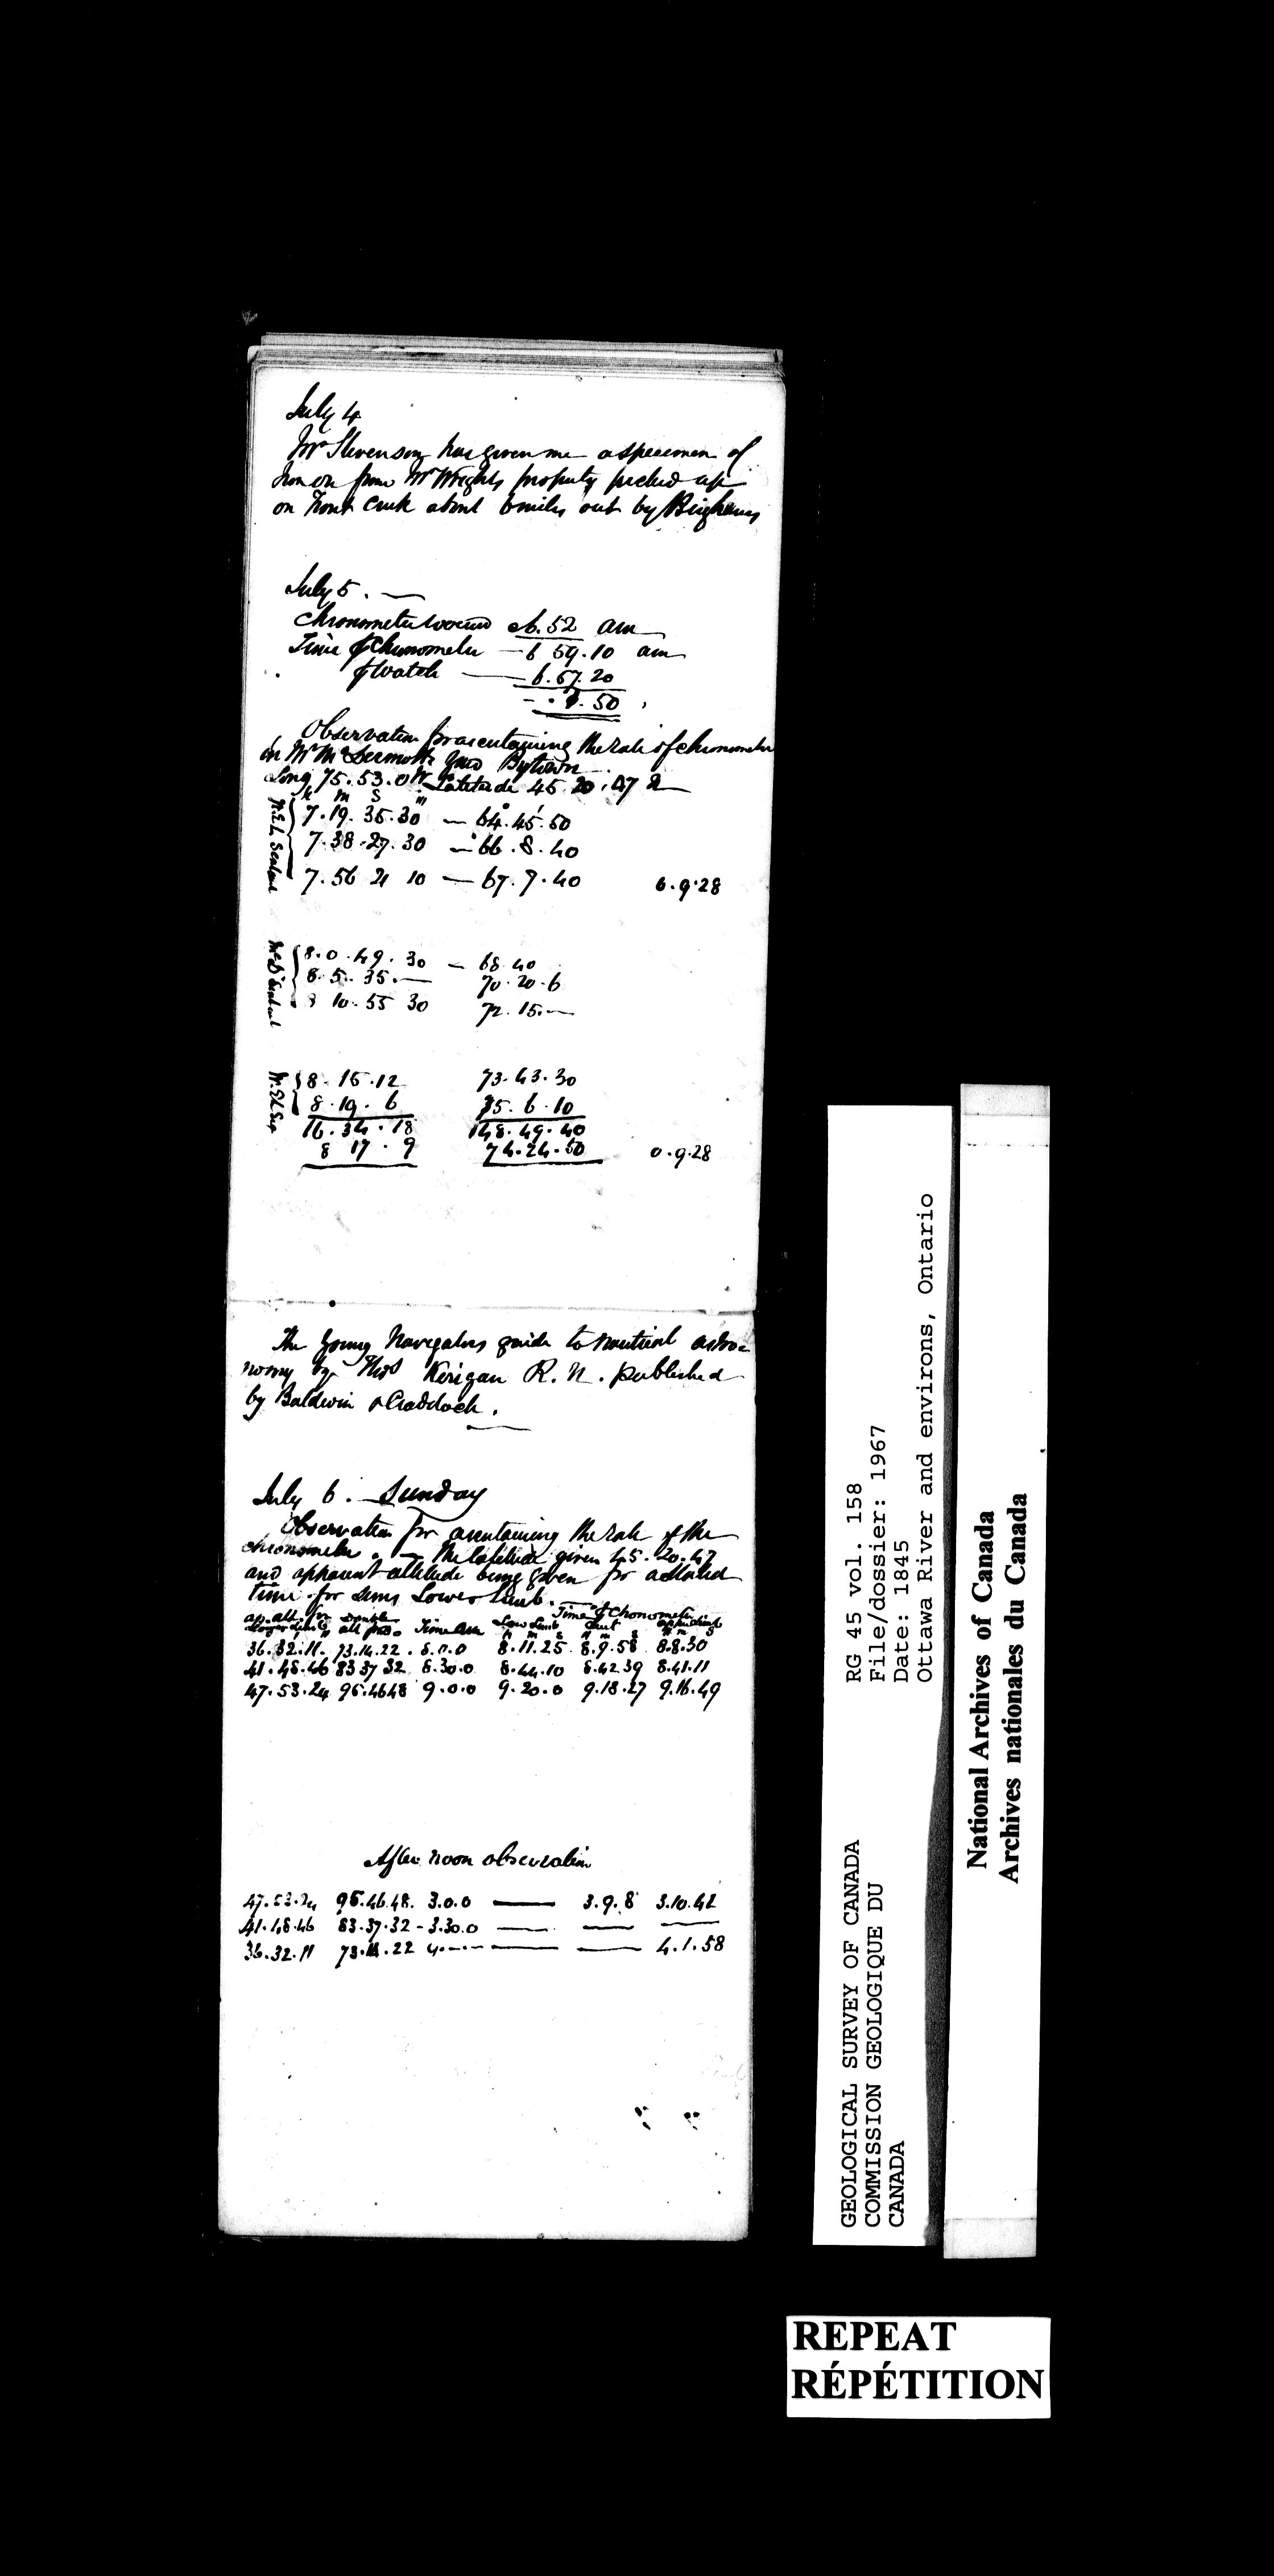 July 4
Mr Stevenson has given me a specimen of
Iron ore from Mr Wrights property picked up
on Trout Creek about 6 miles out by Brighams
July 5. —
Chronometer wound at 6.52 am
Time of Chronometer — 6 59.10 am
of Watch — 6.57.20
- . 1. 50
Observation for ascertaining the rate of chronometer
in Mr McDermotts Bytown
Long 75.53.0 W Latitude 45.20.47 N
h m s
7.19.35.30 — 64.45.50
7.38.27.30 — 66.8.40
7.56 21 10 — 67.7.40 0.9.28
W.E.L. Sextant
8.0.49.30 — 68.40
8.5.35.— 70.20.6
8 10.55 30 72.15.—
McD's Sextant
8.15.12 73.43.30
8.19.6 75.6.10
16.34.18 148.49.40
8 17.9 74.24.50 0.9.28
W.E.L. Sex
The Young Navigators guide to nautical astro=
nomy by Thos Kerigan R.N. published
by Baldwin & Craddock.
July 6. Sunday
Observation for ascertaining the rate of the
chronometer. — The latitude given 45.20.47
and apparent altitude being given for a stated
time for suns Lower limb. —
Time of Chronometer
ap. alt. for double Time am Low Limb
Lower limb alt
h m s h m s h m s
36.32.11. 73.14.22. 8.0.0 8.11.25 8.9.58 8.8.30
41.48.46 83 37 32 8.30.0 8.44.10 8.42 39 8.41.11
47.53.24 95.46 48 9.0.0 9.20.0 9.18.27 9.16.49
After noon observation
47.53.24 95.46.48. 3.0.0 — 3.9.8 3.10.42
41.48.46 83.37.32 - 3.30.0 — — —
36.32.11 73.14.22 4.—.— — — 4.1.58
GEOLOGICAL SURVEY OF CANADA
COMMISSION GEOLOGIQUE DU
CANADA
RG 45 vol. 158
File/dossier: 1967
Date: 1845
Ottawa River and environs, Ontario
National Archives of Canada
Archives nationales du Canada
REPEAT
RÉPÉTITION